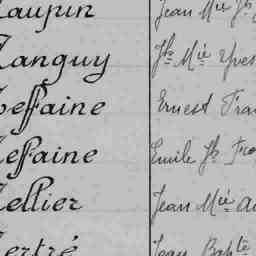 aupin Jean Mie Jh
Tanguy Jh Mie Yves
Teffaine Ernest Fra
Teffaine Emile Jh Fra
Tellier Jean Mie Au
Tertré Jean Bapte